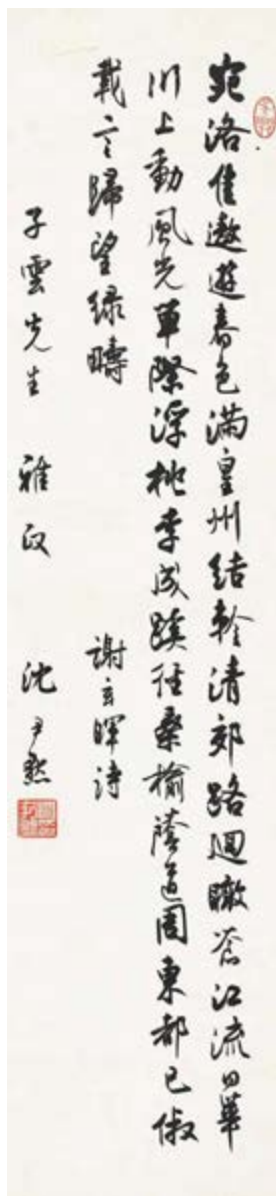 宛洛佳遨遊春色滿皇州結軫清郊路迴瞰蒼江流日華
川上動風光草際浮桃李成蹊徑桑榆蔭道周東都已俶
載言歸望綠疇 謝玄暉詩
子雲先生 雅政 沈尹默